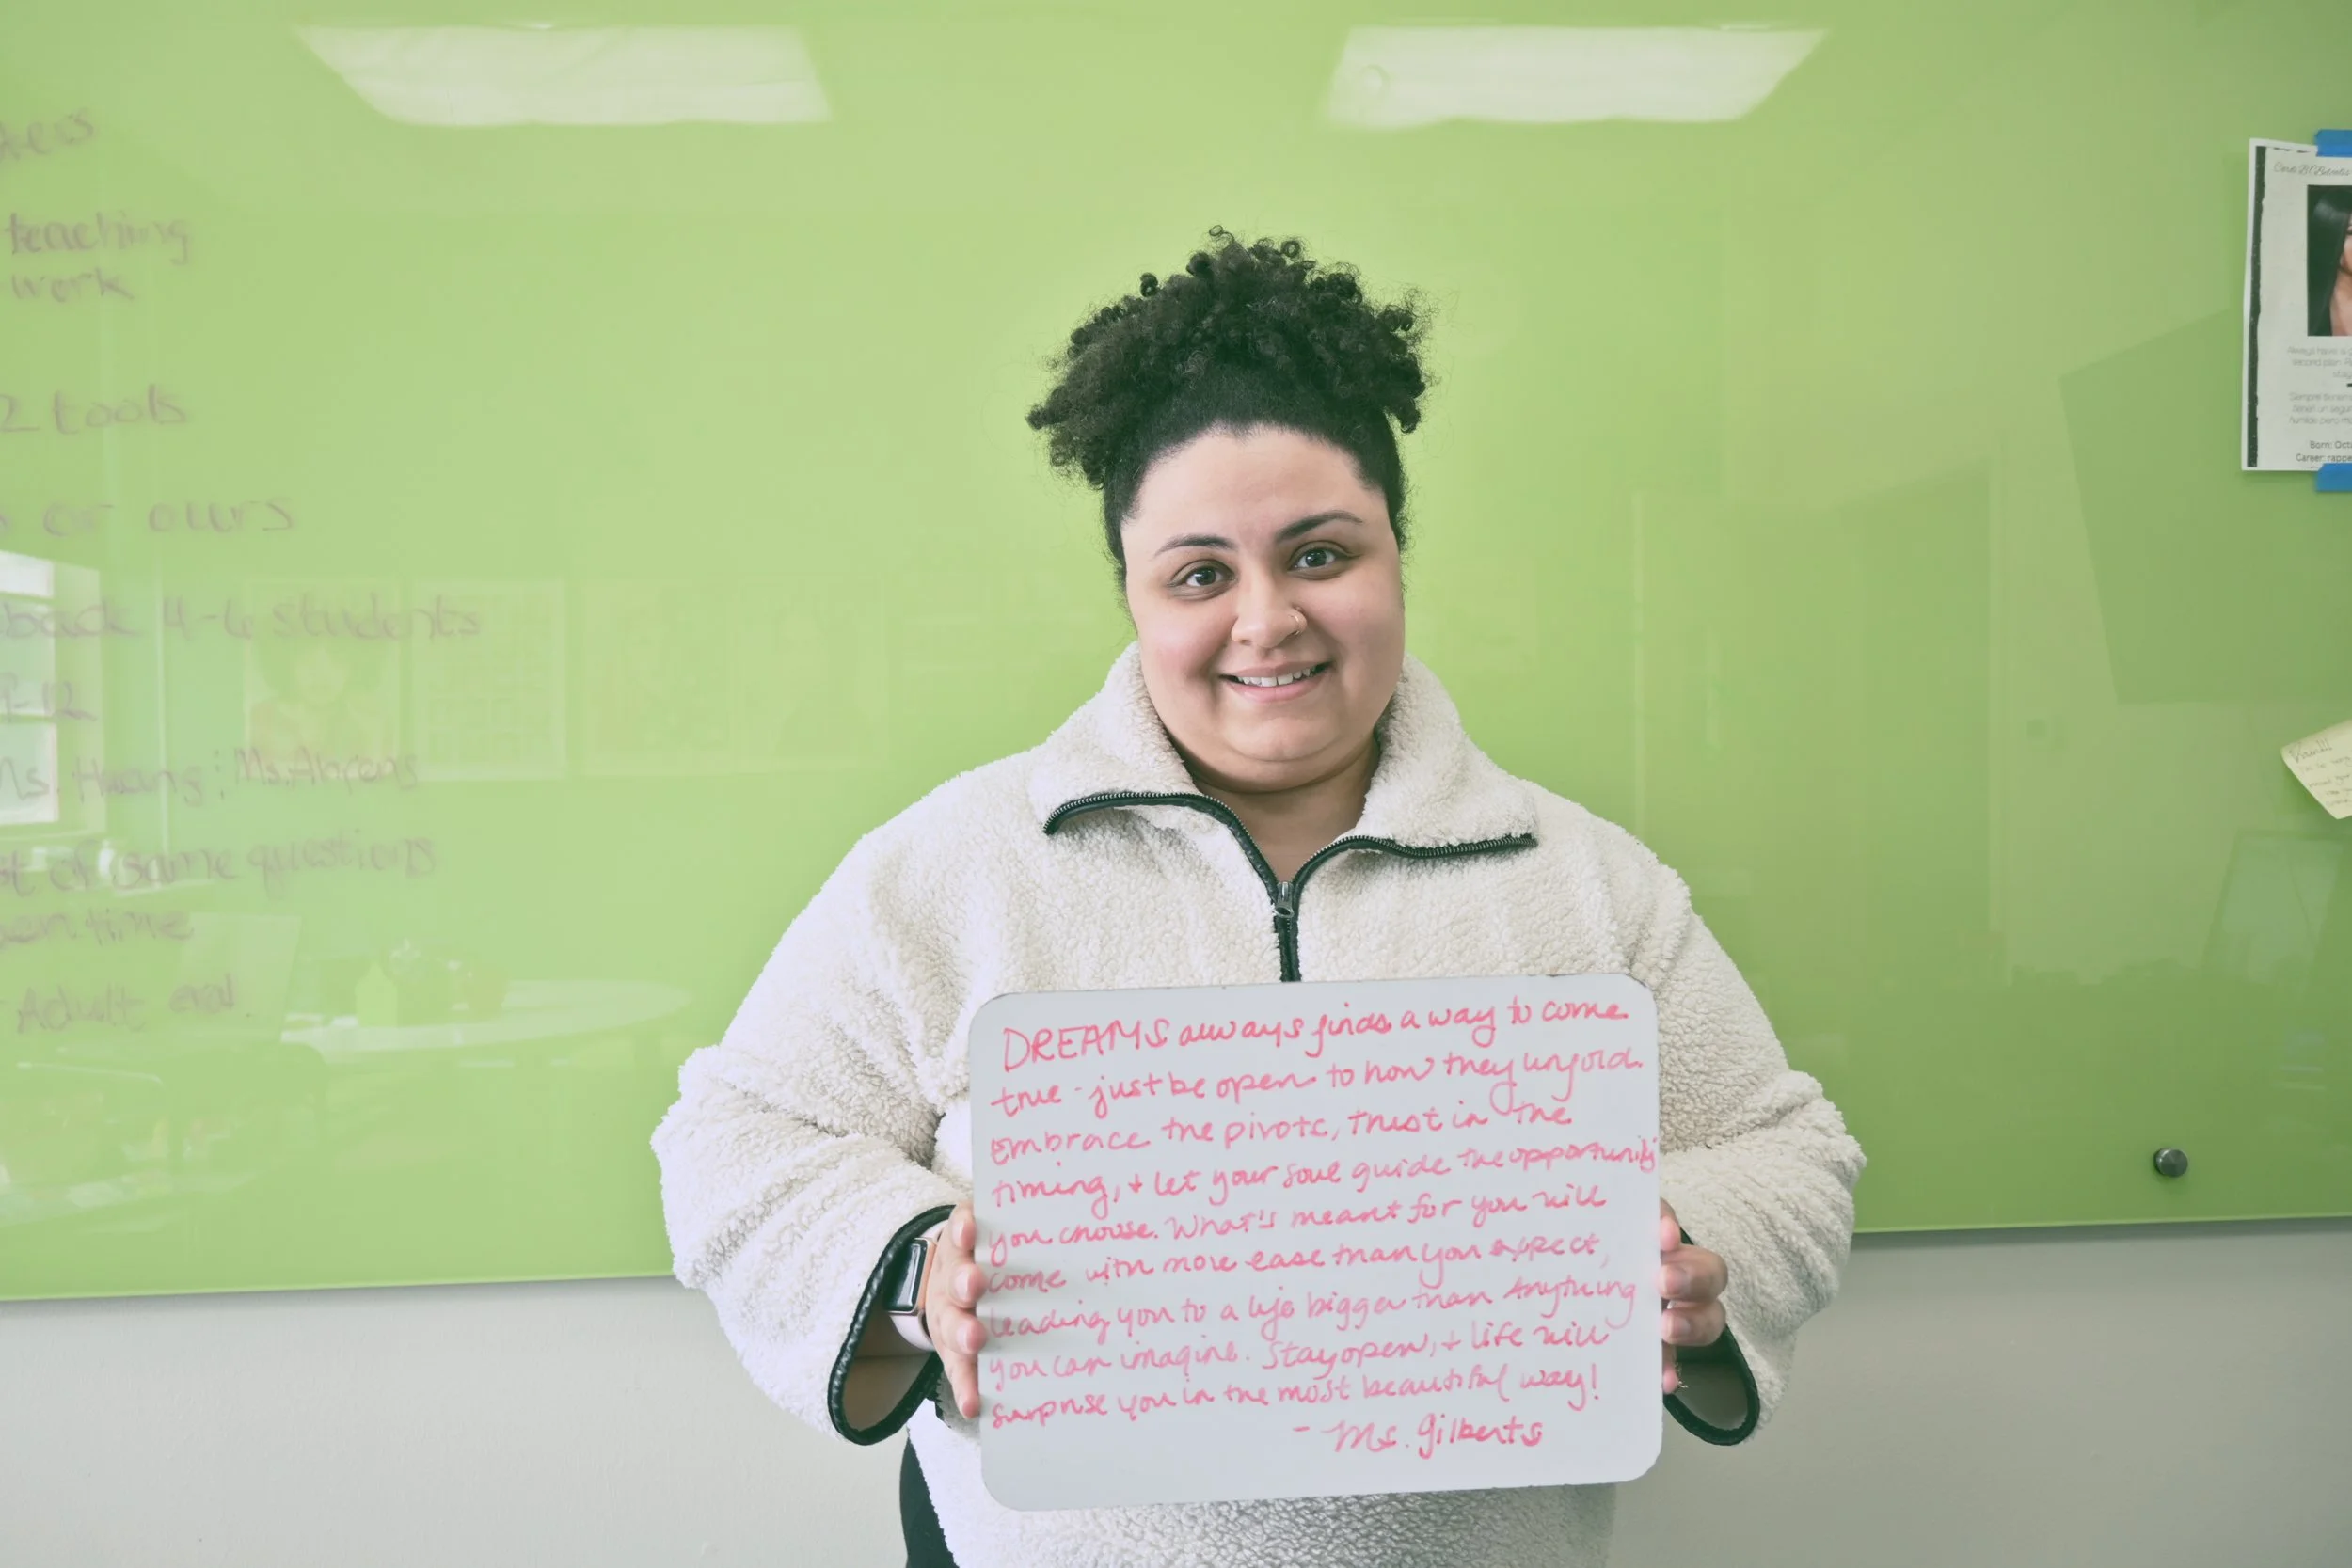 teaching
work
2 tools
or ours
back 4-6 students
-12
Ms. Hwang; Ms. Ahrens
of same questions
time
Adult eval.
Born: Oct
Career: rappe
DREAMS always finds a way to come
true - just be open to how they unfold.
Embrace the pivots, trust in the
timing, + let your soul guide the opportunity
you choose. What's meant for you will
come with more ease than you expect,
leading you to a life bigger than Anything
you can imagine. Stay open, + life will
surprise you in the most beautiful way!
- Ms. Gilberts